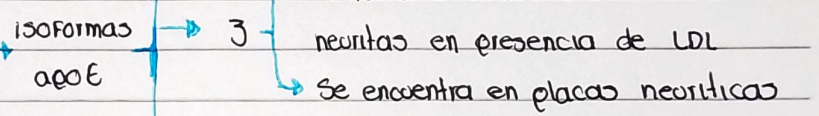 isoformas
apoE
3
neuritas en presencia de LDL
Se encuentra en placas neuriticas